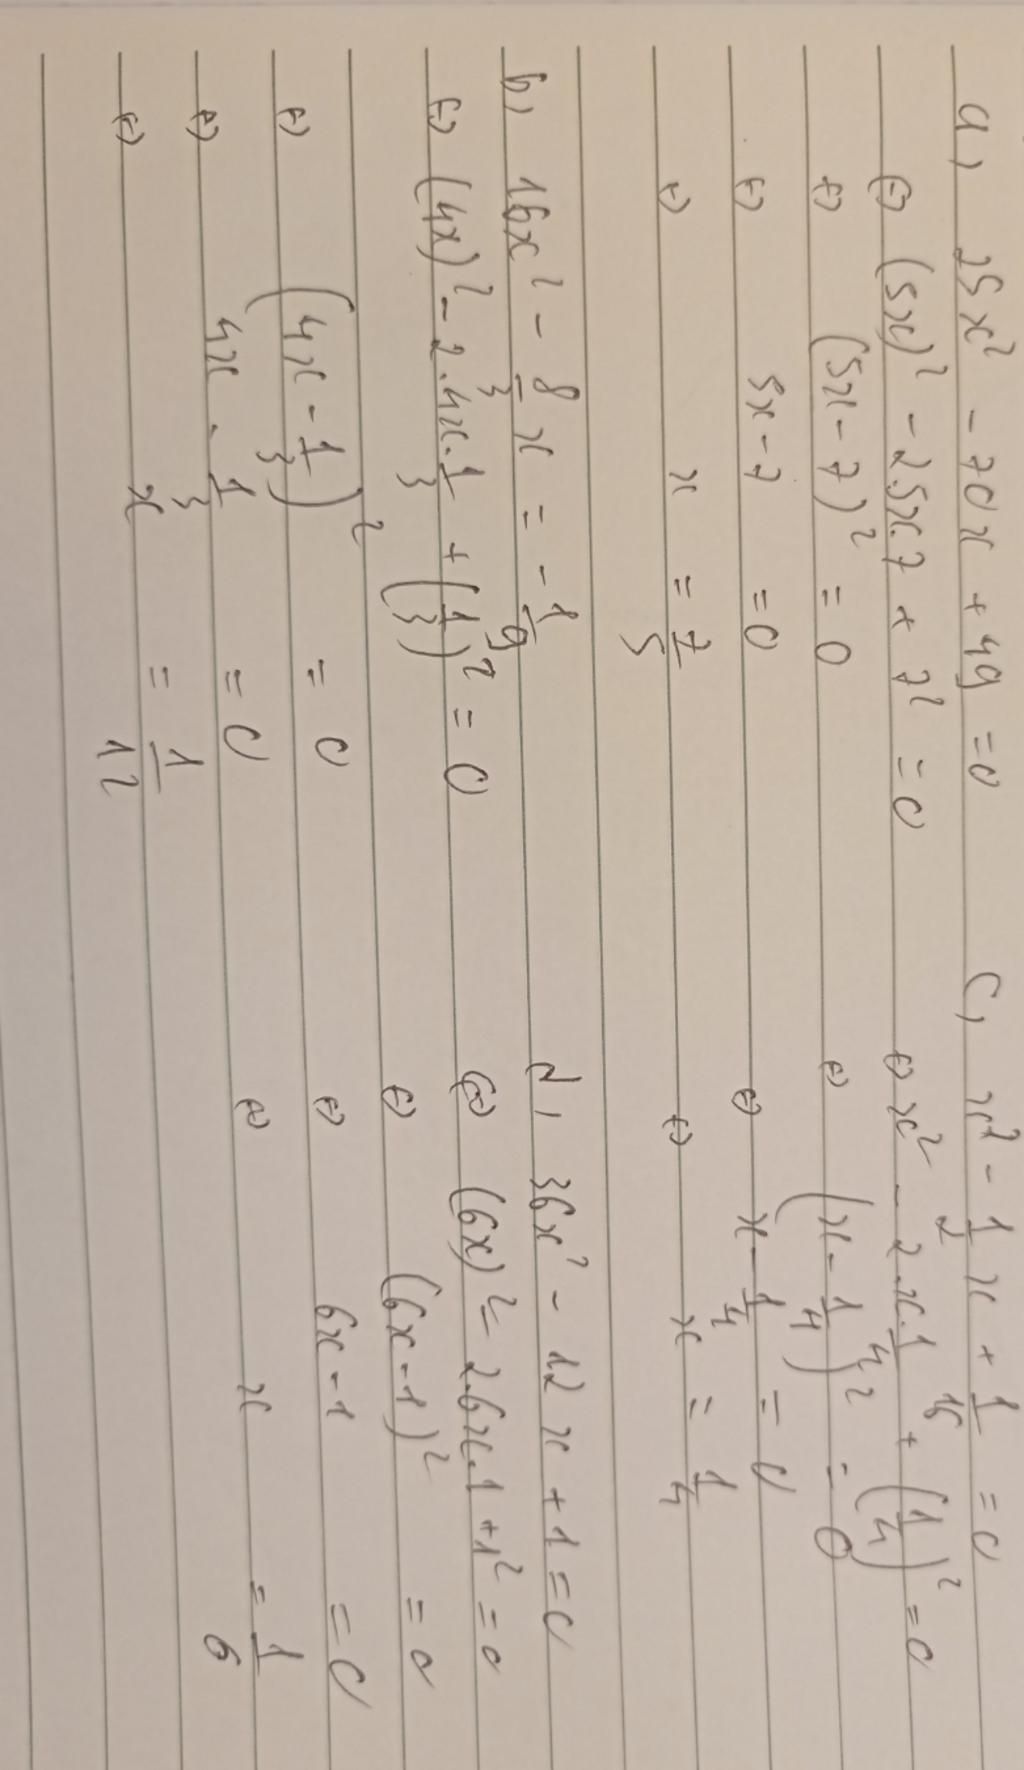 a, 25x² - 70x + 49 = 0
⇔ (5x)² - 2.5x.7 + 7² = 0
⇔ (5x - 7)² = 0
⇔ 5x - 7 = 0
⇔ x = 7/5
b, 16x² - 8/3 x = - 1/9
⇔ (4x)² - 2.4x.1/3 + (1/3)² = 0
⇔ (4x - 1/3)² = 0
⇔ 4x - 1/3 = 0
⇔ x = 1/12
c, x² - 1/2 x + 1/16 = 0
⇔ x² - 2.x.1/4 + (1/4)² = 0
⇔ (x - 1/4)² = 0
⇔ x - 1/4 = 0
⇔ x = 1/4
d, 36x² - 12x + 1 = 0
⇔ (6x)² - 2.6x.1 + 1² = 0
⇔ (6x - 1)² = 0
⇔ 6x - 1 = 0
⇔ x = 1/6